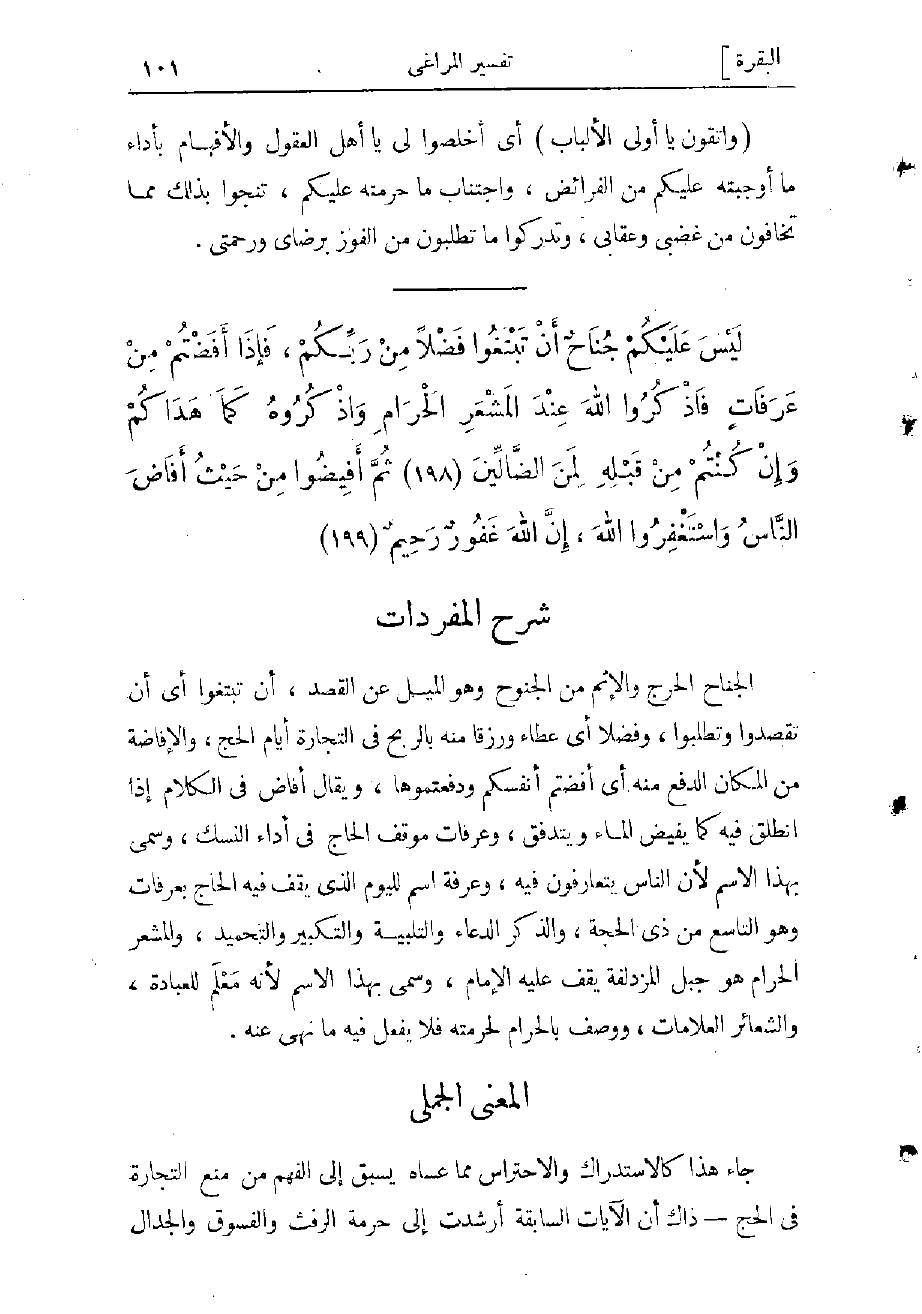 البقرة ] تفسير المراغى ١٠١
( واتقون يا أولى الألباب ) أى أخلصوا لى يا أهل العقول والأفهام بأداء
ما أوجبته عليكم من الفرائض ، واجتناب ما حرمته عليكم ، تنجوا بذلك مما
تخافون من غضبى وعقابى ، وتدركوا ما تطلبون من الفوز برضاى ورحمتى .
لَيْسَ عَلَيْكُمْ جُنَاحٌ أَنْ تَبْتَغُوا فَضْلاً مِنْ رَبِّكُمْ ، فَإِذَا أَفَضْتُمْ مِنْ
عَرَفَاتٍ فَاذْكُرُوا اللهَ عِنْدَ المَشْعَرِ الحَرَامِ وَاذْكُرُوهُ كَمَا هَدَاكُمْ
وَإِنْ كُنْتُمْ مِنْ قَبْلِهِ لَمِنَ الضَّالِّينَ (١٩٨) ثُمَّ أَفِيضُوا مِنْ حَيْثُ أَفَاضَ
النَّاسُ وَاسْتَغْفِرُوا اللهَ ، إِنَّ اللهَ غَفُورٌ رَحِيمٌ (١٩٩)
شرح المفردات
الجناح الحرج والإثم من الجنوح وهو الميل عن القصد ، أن تبتغوا أى أن
تقصدوا وتطلبوا ، وفضلا أى عطاء ورزقا منه بالربح فى التجارة أيام الحج ، والإفاضة
من المكان الدفع منه أى أفضتم أنفسكم ودفعتموها ، ويقال أفاض فى الكلام إذا
انطلق فيه كما يفيض الماء ويتدفق ، وعرفات موقف الحاج فى أداء النسك ، وسمى
بهذا الاسم لأن الناس يتعارفون فيه ، وعرفة اسم لليوم الذى يقف فيه الحاج بعرفات
وهو التاسع من ذى الحجة ، والذكر الدعاء والتلبية والتكبير والتحميد ، والمشعر
الحرام هو جبل المزدلفة يقف عليه الإمام ، وسمى بهذا الاسم لأنه مَعْلَم للعبادة ،
والشعائر العلامات ، ووصف بالحرام لحرمته فلا يفعل فيه ما نهى عنه .
المعنى الجملى
جاء هذا كالاستدراك والاحتراس مما عساه يسبق إلى الفهم من منع التجارة
فى الحج — ذاك أن الآيات السابقة أرشدت إلى حرمة الرفث والفسوق والجدال